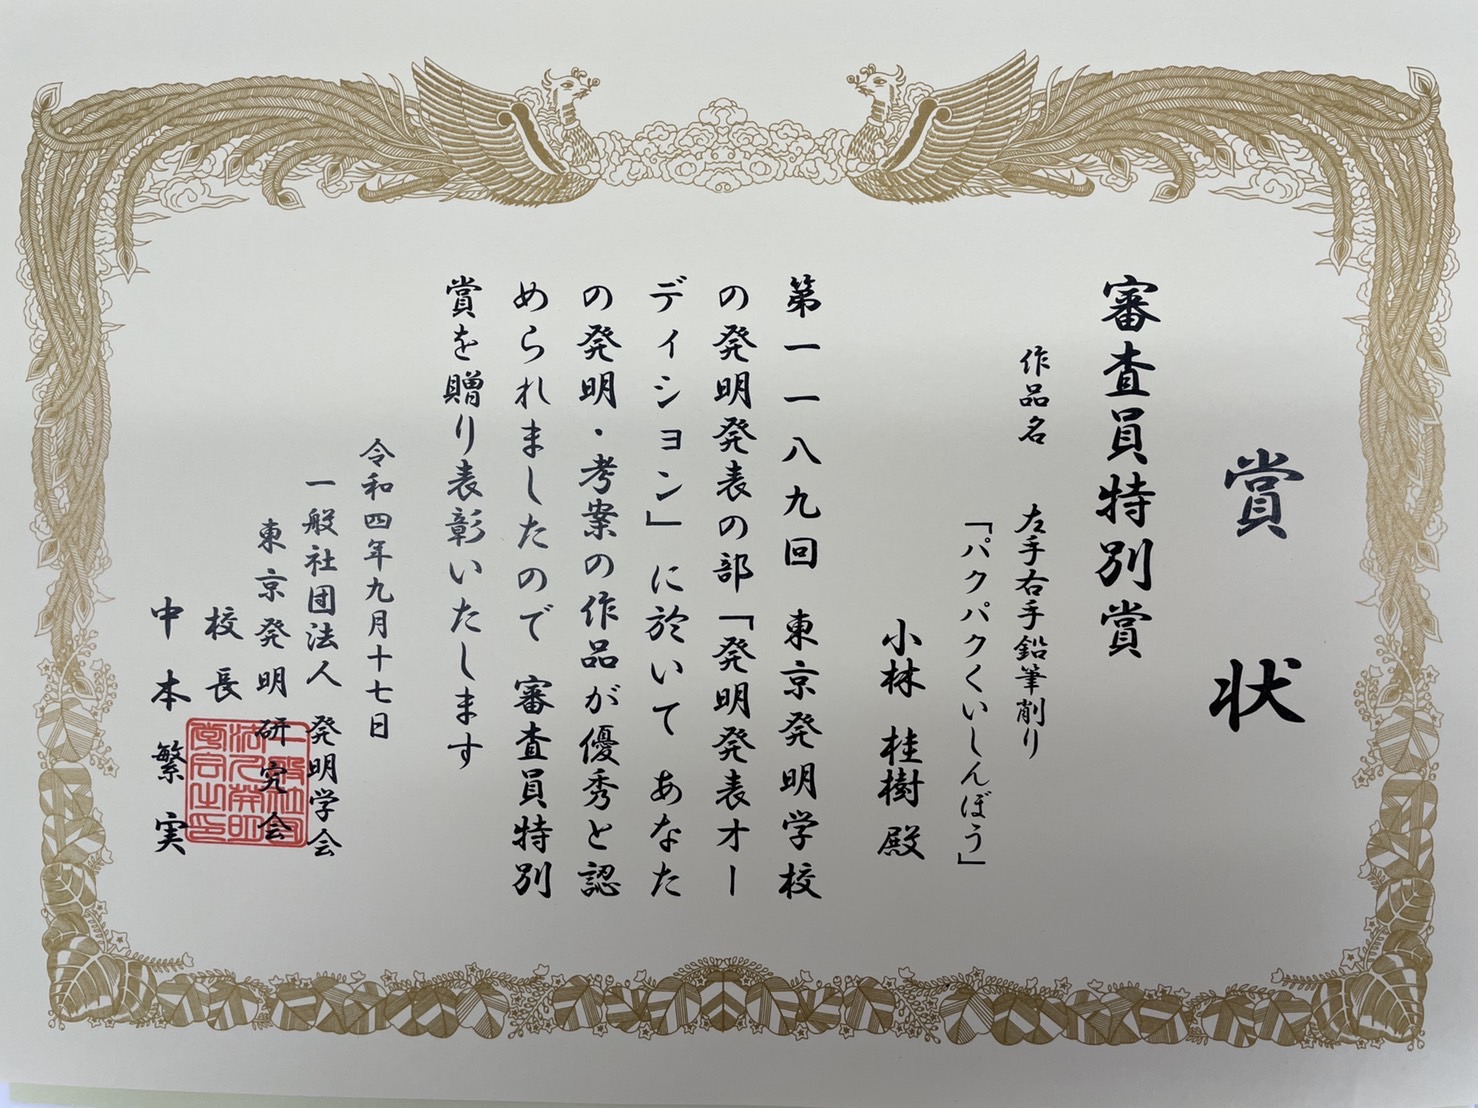 賞状
審査員特別賞
作品名 左手右手鉛筆削り
「パクパクくいしんぼう」
小林 桂樹 殿
第一一八九回 東京発明学校
の発明発表の部「発明発表オー
ディション」に於いて あなた
の発明・考案の作品が優秀と認
められましたので 審査員特別
賞を贈り表彰いたします
令和四年九月十七日
一般社団法人 発明学会
東京発明研究会
校長
中本 繁実